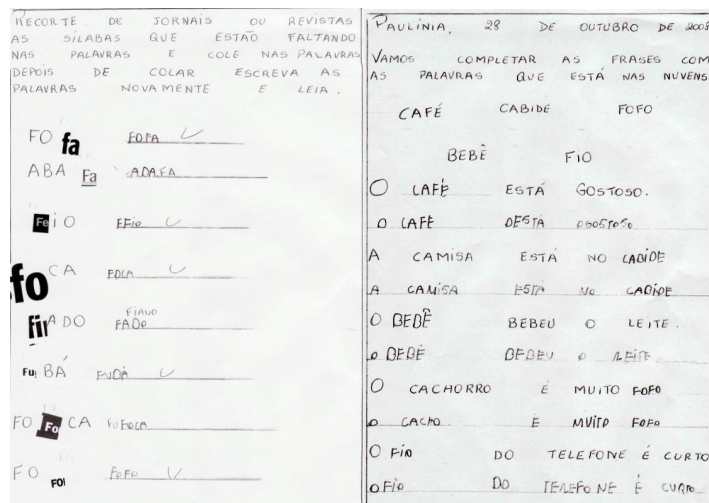 RECORTE DE JORNAIS OU REVISTAS
AS SÍLABAS QUE ESTÃO FALTANDO
NAS PALAVRAS E COLE NAS PALAVRAS
DEPOIS DE COLAR ESCREVA AS
PALAVRAS NOVAMENTE E LEIA.
FO fa FOFA
ABA Fa ADAFA
Fe IO FFIO
fo CA FOCA
fin ADO FIAVO FADO
Fu BÁ FUDÁ
FO Fo CA FUFOCA
FO FOI FOFO
PAULÍNIA, 28 DE OUTUBRO DE 2008
VAMOS COMPLETAR AS FRASES COM
AS PALAVRAS QUE ESTÁ NAS NUVENS.
CAFÉ CABIDE FOFO
BEBÊ FIO
O CAFÉ ESTÁ GOSTOSO.
O CAFÉ DESTÁ OGOSTOSO
A CAMISA ESTÁ NO CADIDE
A CAMISA ESTA NO CADIDE
O BEDÊ BEBEU O LEITE.
O BEDÊ DEDEU O LEITE
O CACHORRO É MUITO FOFO
O CACHO É MUITO FOFO
O FIO DO TELEFONE É CURTO
O FIO DO TELEFONE É CURTO